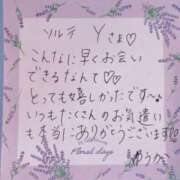 ソルテ Yさま♡
こんなに早くお会い
できるなんて♡♡
とっても嬉しかったです〜
いつもたくさんのお気遣い
も本当にありがとうございます♡
Floral days
ゆうか